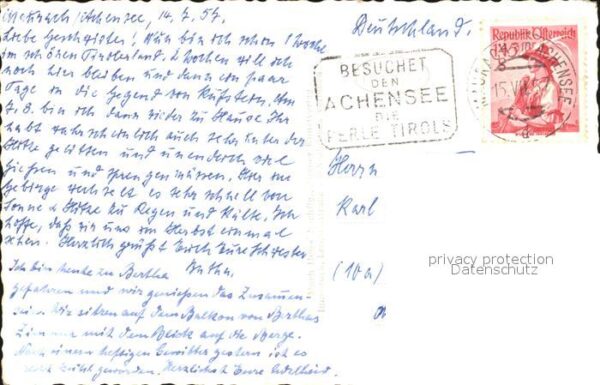 Maurach/Achensee, 14. 7. 57.
Liebe Geschwister! Nun bin ich schon 1 Woche
im schönen Tirolerland. 2 Wochen will ich
noch hier bleiben und dann ein paar
Tage in die Gegend von Kufstein. Am
7. 8. bin ich dann wieder zu Hause. Ihr
habt wahrscheinlich auch sehr unter der
Hitze gelitten und unendlich viel
gießen und sprengen müssen. Hier im
Gebirge wechselt es sehr schnell von
Sonne & Hitze zu Regen und Kälte. Ich
hoffe, daß wir uns im Herbst einmal
sehen. Herzlich grüßt Euch Eure Schwester
Bertha.
Ich bin heute zu Bertha
gefahren und wir genießen das Zusammen-
sein. Wir sitzen auf dem Balkon von Berthas
Zimmer mit dem Blick auf die Berge.
Nach einem heftigen Gewitter gestern ist es
recht kühl geworden. Herzlichst Eure Adelheid.
Deutschland.
Republik Österreich
BESUCHET
DEN
ACHENSEE
DIE
PERLE TIROLS
MAURACH ACHENSEE
15. VII.
Herrn
Karl
(10a)
privacy protection
Datenschutz